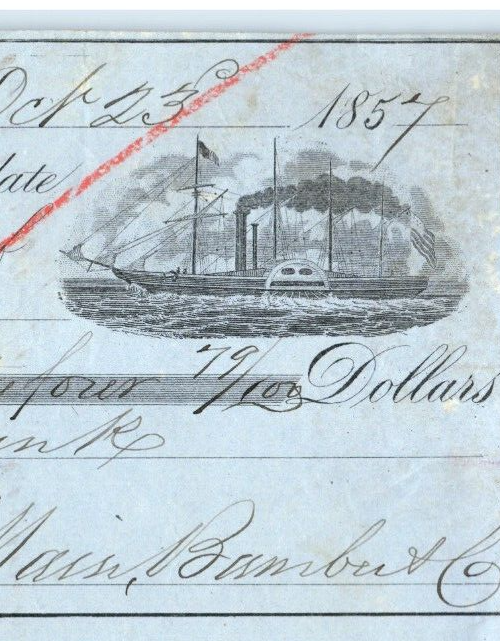 Oct 23 1857
date
four 79/100 Dollars
ank
Main, Bamber & C